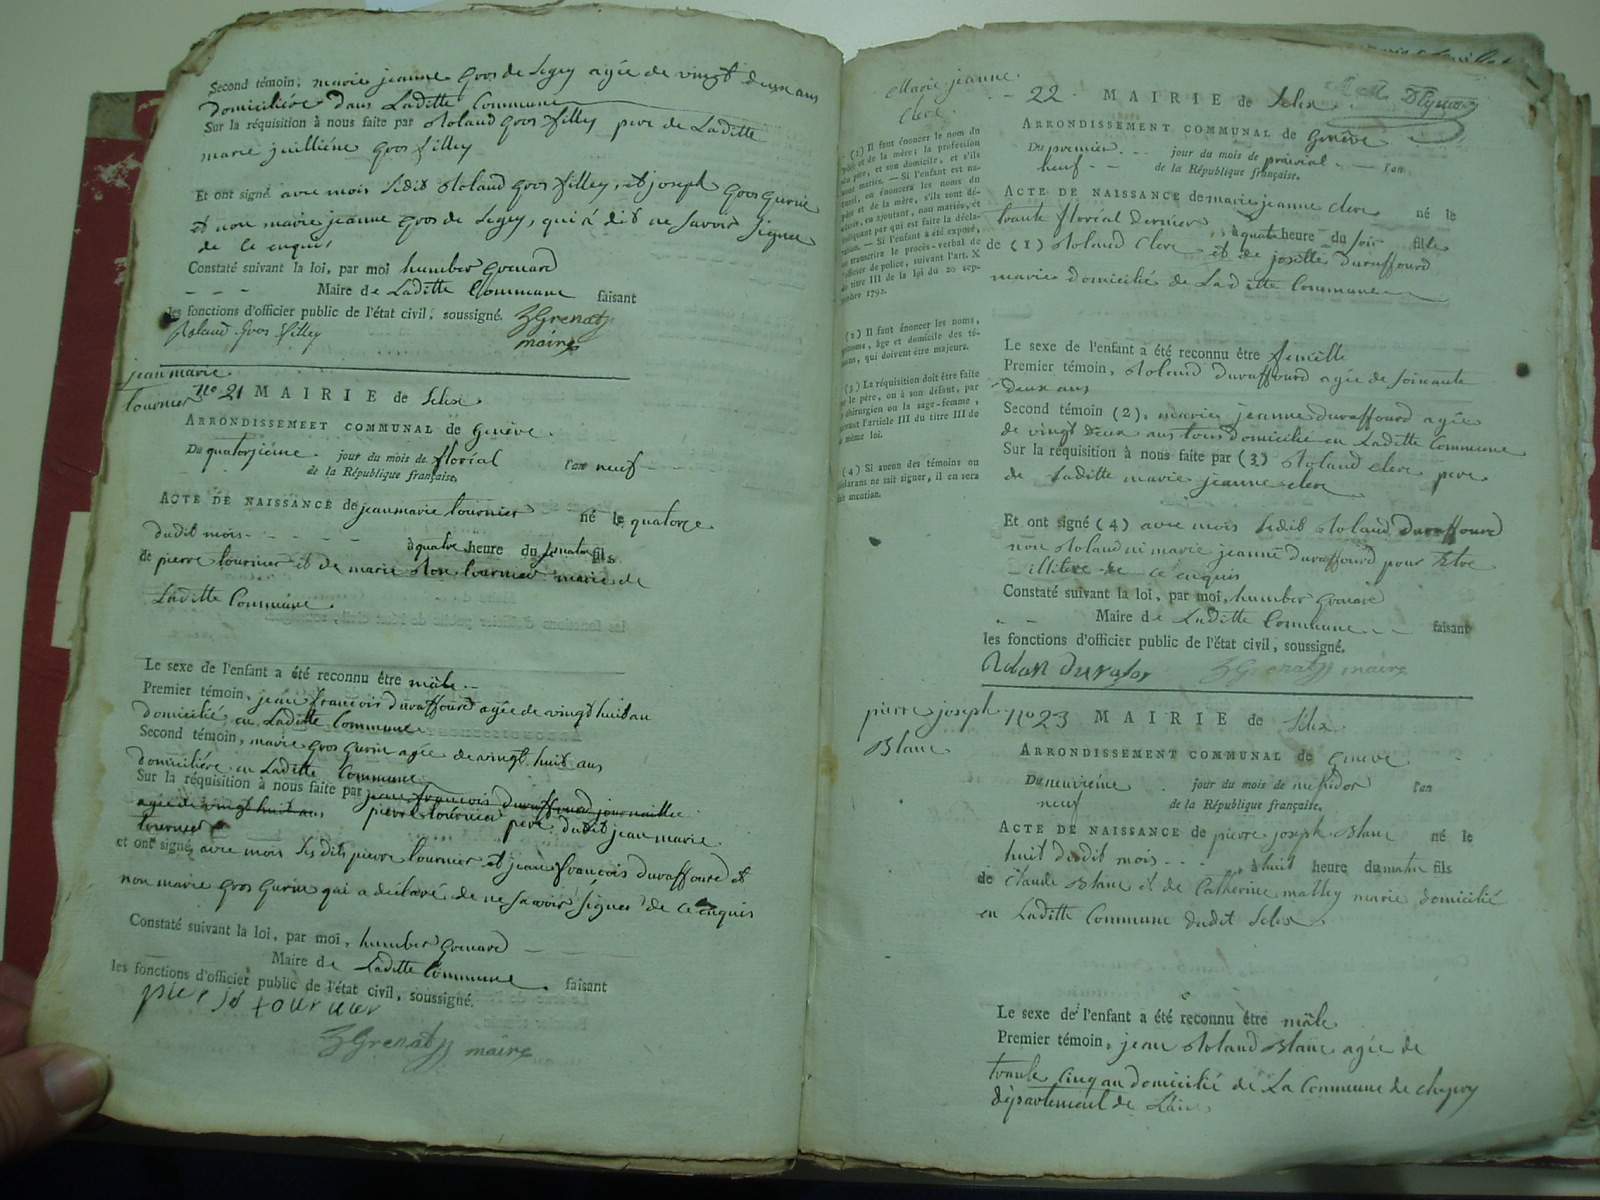 Second témoin, marie jeanne Gros de Legey agée de vingt deux ans
domiciliére dans Laditte Commune
Sur la réquisition à nous faite par Roland Gros filley pere de Laditte
marie juilliéne Gros filley
Et ont signé avec mois ledit Roland Gros filley, et joseph Gros Gurin
et non marie jeanne Gros de Legey, qui á dit ne savoir signer
de ce enquis
Constaté suivant la loi, par moi humber Grenard
Maire de Laditte Commune faisant
les fonctions d'officier public de l'état civil, soussigné. Grenard
Roland Gros filley
maire
jean marie
tournier
n° 21 MAIRIE de Lelex
ARRONDISSEMEET COMMUNAL de Genève.
Du quatorzieme jour du mois de floréal l'an neuf
de la République française.
ACTE DE NAISSANCE de jean marie tournier né le quatorze
dudit mois à quatre heure du matin fils
de pierre tournier et de marie Rose tournier marié de
Laditte Commune.
Le sexe de l'enfant a été reconnu être mâle
Premier témoin, jean francois duraffourd agée de vingt huit an
domicilié en Laditte Commune
Second témoin, marie Gros Gurin agée de vingt huit ans
domiciliére en Laditte Commune
Sur la réquisition à nous faite par jean francois duraffourd
agée de vingt huit ans pierre tournier pere dudit jean marie
tournier
et ont signé avec mois les dits pierre tournier et jean francois duraffourd et
non marie Gros Gurin qui a déclaré de ne savoir signer de ce enquis
Constaté suivant la loi, par moi, humber Grenard
Maire de Laditte Commune faisant
les fonctions d'officier public de l'état civil, soussigné.
tournier
Grenard maire
Marie jeanne
Clerc
(1) Il faut énoncer le nom du
père et de la mère; la profession
du père, et son domicile, et s'ils
sont mariés. — Si l'enfant est na-
turel, on énoncera les noms du
père et de la mère, s'ils sont dé-
clarés, en ajoutant, non mariés, et
indiquant par qui est faite la décla-
ration. — Si l'enfant a été exposé,
on transcrira le procès-verbal de
l'officier de police, suivant l'art. X
du titre III de la loi du 20 sep-
tembre 1792.
(2) Il faut énoncer les noms,
prénoms, âge et domicile des té-
moins, qui doivent être majeurs.
(3) La réquisition doit être faite
par le père, ou à son défaut, par
le chirurgien ou la sage-femme,
suivant l'article III du titre III de
la même loi.
(4) Si aucun des témoins ou
déclarans ne sait signer, il en sera
fait mention.
22 MAIRIE de Lelex
ARRONDISSEMENT COMMUNAL de Genève
Du premier jour du mois de prairial l'an
neuf de la République française.
ACTE DE NAISSANCE de marie jeanne clerc né le
trante floréal dernier à quatre heure du soir fille
de (1) Roland Clerc et de josette duraffourd
marie domicilié de Laditte Commune
Le sexe de l'enfant a été reconnu être femelle
Premier témoin, Roland duraffourd agée de soixante
deux ans
Second témoin (2), marie jeanne duraffourd agée
de vingt deux ans tous domicilié en Laditte Commune
Sur la réquisition à nous faite par (3) Roland clerc pere
de Laditte marie jeanne clerc
Et ont signé (4) avec mois ledit Roland duraffourd
non Roland ni marie jeanne duraffourd pour Etre
illitere de ce enquis
Constaté suivant la loi, par moi, humber Grenard
Maire de Laditte Commune faisant
les fonctions d'officier public de l'état civil, soussigné.
Grenard maire
pierre joseph
Blanc
n° 23 MAIRIE de Lélex
ARRONDISSEMENT COMMUNAL de Geneve
Du neuvieme jour du mois de messidor l'an
neuf de la République française.
ACTE DE NAISSANCE de pierre joseph Blanc né le
huit dudit mois à huit heure du matin fils
de Claude Blanc et de Catherine mathey marie domicilié
en Laditte Commune dudit Lelex
Le sexe de l'enfant a été reconnu être mâle
Premier témoin, jean Roland Blanc agée de
trante cinq an domicilié de La Commune de chezery
département de L'ain